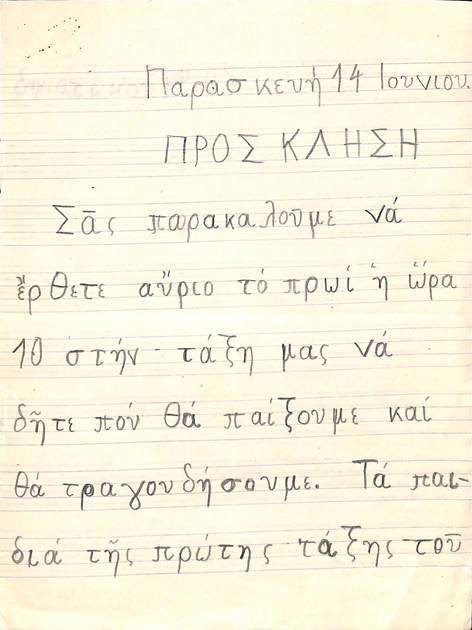 Παρασκευή 14 Ιουνίου.
ΠΡΟΣ ΚΛΗΣΗ
Σᾶς παρακαλοῦμε νά
ἔρθετε αὔριο τό πρωί ἡ ὥρα
10 στήν τάξη μας νά
δῆτε πού θά παίξουμε καί
θά τραγουδήσουμε. Τά παι-
διά τῆς πρώτης τάξης τοῦ